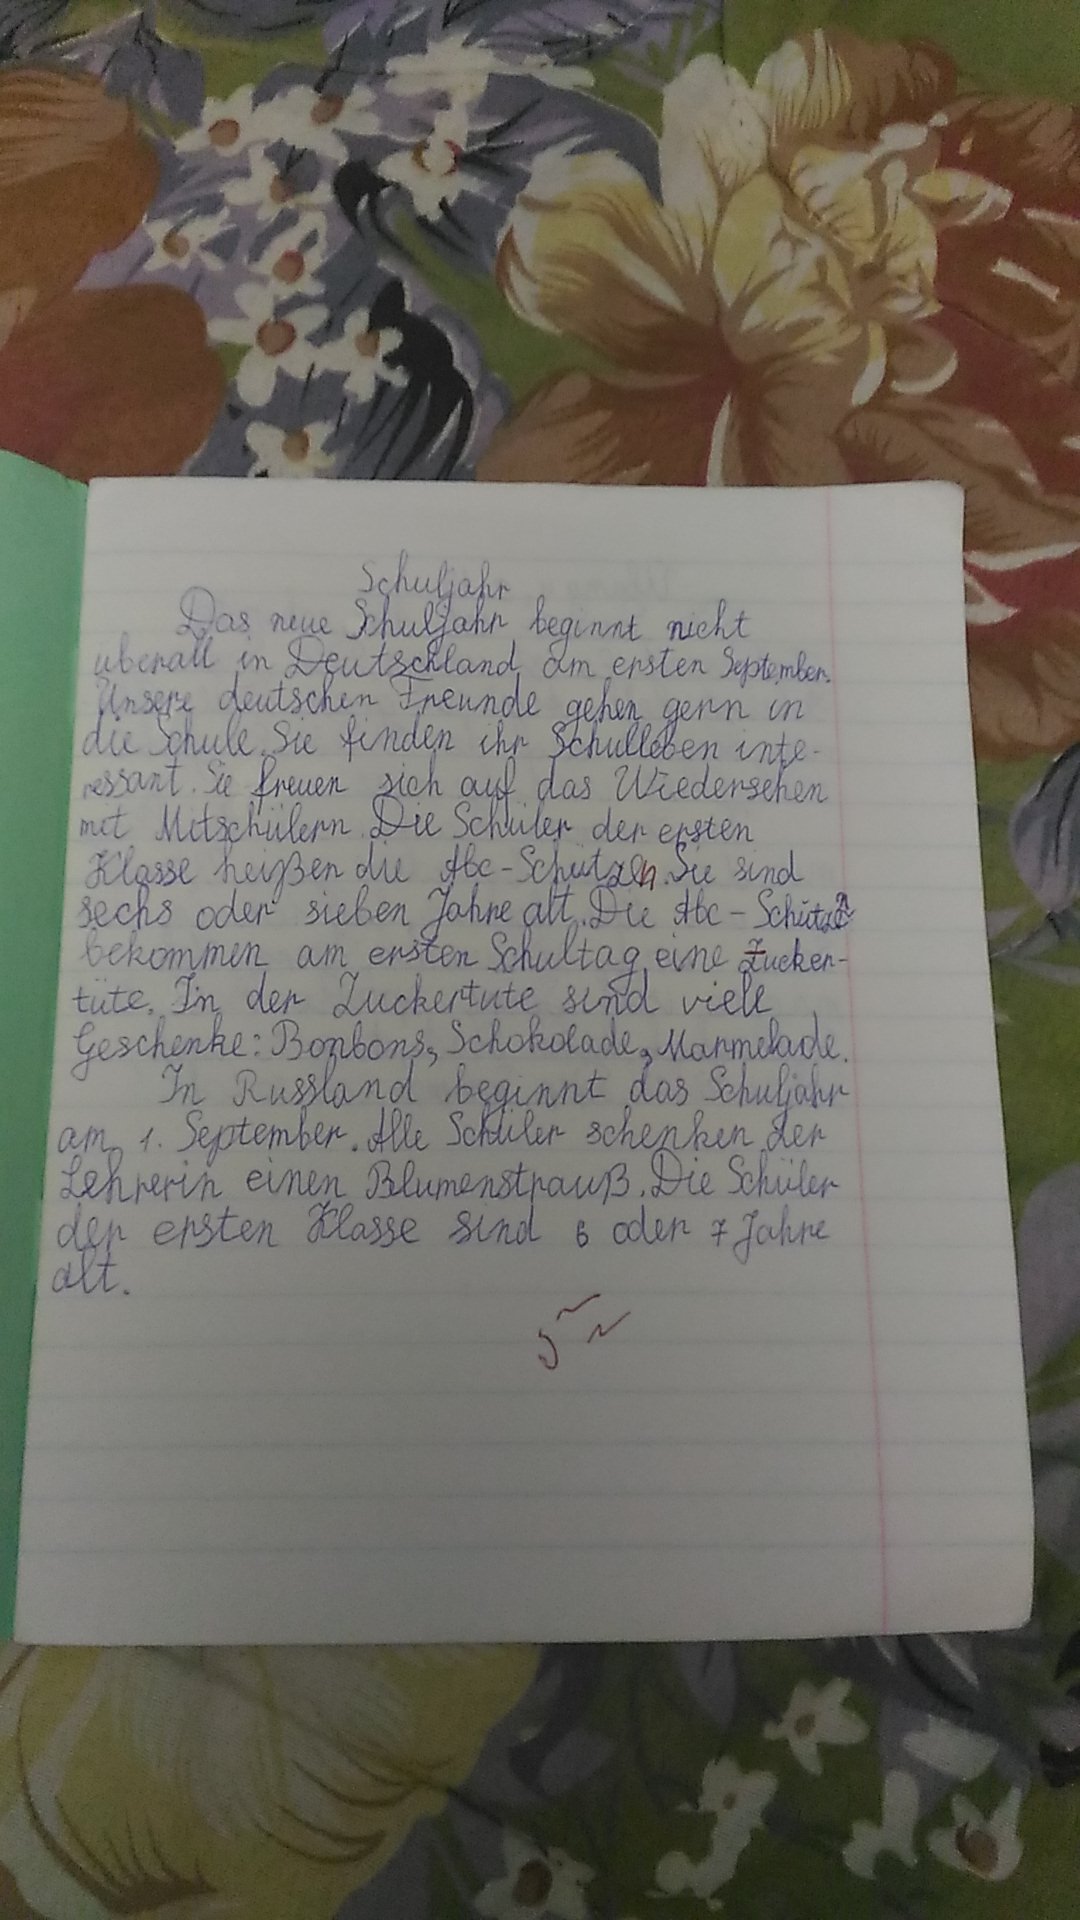 Schuljahr
Das neue Schuljahr beginnt nicht
überall in Deutschland am ersten September.
Unsere deutschen Freunde gehen gern in
die Schule. Sie finden ihr Schulleben inte-
ressant. Sie freuen sich auf das Wiedersehen
mit Mitschülern. Die Schüler der ersten
Klasse heißen die Abc-Schützen. Sie sind
sechs oder sieben Jahre alt. Die Abc-Schützen
bekommen am ersten Schultag eine Zucker-
tüte. In der Zuckertute sind viele
Geschenke: Bonbons, Schokolade, Marmelade.
In Russland beginnt das Schuljahr
am 1. September. Alle Schüler schenken der
Lehrerin einen Blumenstrauß. Die Schüler
der ersten Klasse sind 6 oder 7 Jahre
alt.
5